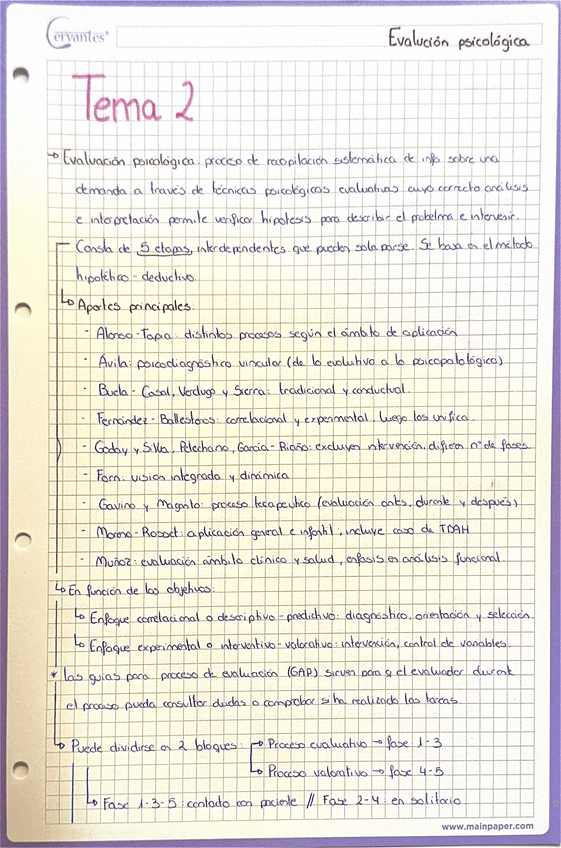 Cervantes®
Evalución psicológica
Tema 2
→ Evaluación psicológica: proceso de recopilación sistemática de info sobre una
demanda a través de técnicas psicológicas evaluativas cuyo correcto análisis
e interpretación permite verificar hipótesis para describir el probelma e intervenir.
Consta de 5 etapas, interdependentes que pueden solaparse. Se basa en el método
hipotético-deductivo.
↳ Aportes principales:
- Alonso-Tapia: distintos procesos según el ámbito de aplicación
- Ávila: psicodiagnóstico vincular (de lo evolutivo a lo psicopatológico)
- Buela-Casal, Verdugo y Sierra: tradicional y conductual.
- Fernández-Ballesteros: correlacional y experimental, luego los unifica.
- Godoy y Silva, Pelechano, García-Riaño: excluyen intervención, difieren nº de fases.
- Forn: visión integrada y dinámica
- Gavino y Magnito: proceso terapeutico (evaluación antes, durante y después)
- Moreno-Rosset: aplicación general e infantil, incluye caso de TDAH
- Muñoz: evaluación ámbito clínico y salud, enfasis en análisis funcional.
↳ En función de los objetivos:
↳ Enfoque correlacional o descriptivo-predictivo: diagnóstico, orientación y selección.
↳ Enfoque experimental o interventivo-valorativo: intervención, control de variables.
* Las guías para proceso de evaluación (GAP) sirven para q el evaluador durante
el proceso pueda consultar dudas o comprobar si ha realizado las tareas.
↳ Puede dividirse en 2 bloques: → Proceso evaluativo → fase 1-3
↳ Proceso valorativo → fase 4-5
↳ Fase 1-3-5: contado con paciente // Fase 2-4: en solitario.
www.mainpaper.com